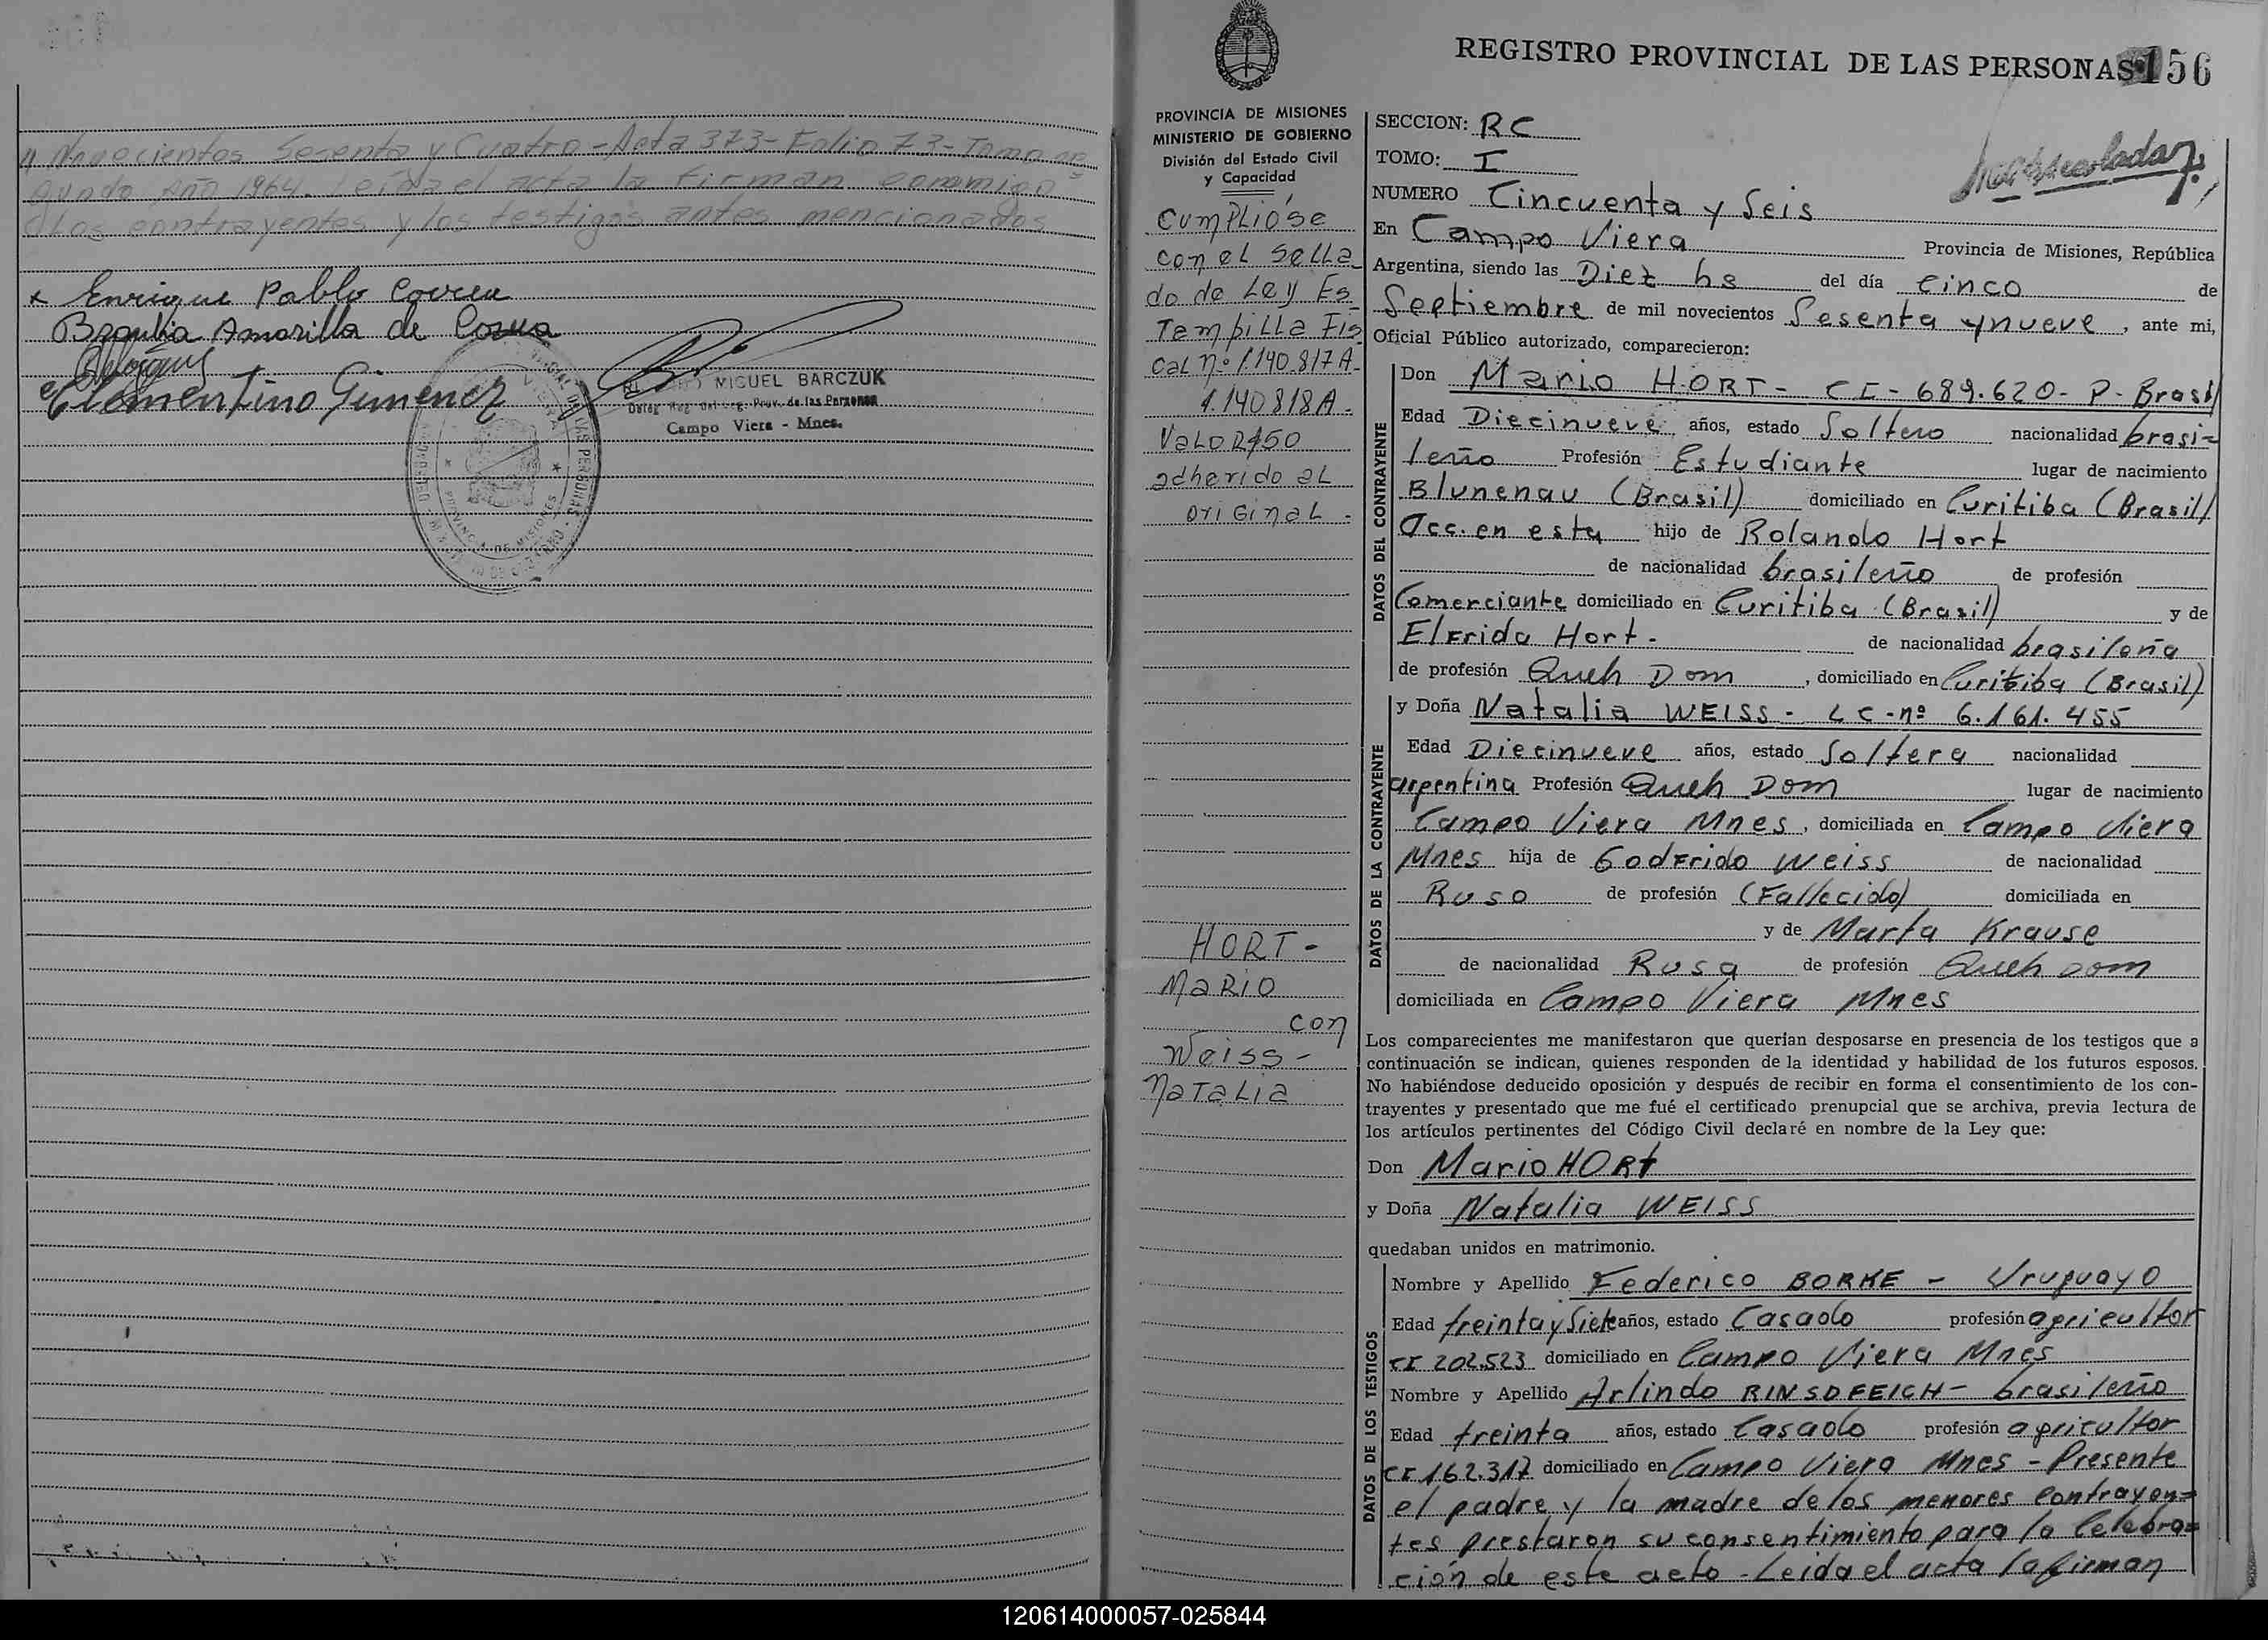 Novecientos Sesenta y Cuatro - Acta 373 - Folio 73 - Tomo se
gundo Año 1964. Leída el acta la firman conmigo
los contrayentes y los testigos antes mencionados
x Enrique Pablo Correa
Braulia Amarilla de Correa
Clementino Gimenez
MIGUEL BARCZUK
Deleg. Reg. Prov. de las Personas
Campo Viera - Mnes.
PROVINCIA DE MISIONES
REGISTRO PROVINCIAL DE LAS PERSONAS
156
PROVINCIA DE MISIONES
MINISTERIO DE GOBIERNO
División del Estado Civil
y Capacidad
Cumplióse
con el Sella
do de Ley Es
Tampilla Fis
cal nº 1.140.817A-
1.140818A.
Valor $50
adherido al
original.
HORT -
Mario
con
Weiss -
Natalia
SECCION: RC
TOMO: I
NUMERO Cincuenta y Seis
En Campo Viera Provincia de Misiones, República
Argentina, siendo las Diez hs del día Cinco de
Septiembre de mil novecientos Sesenta y nueve, ante mi,
Oficial Público autorizado, comparecieron:
DATOS DEL CONTRAYENTE
Don Mario HORT - CI - 689.620 - P - Brasil
Edad Diecinueve años, estado Soltero nacionalidad brasi=
leño Profesión Estudiante lugar de nacimiento
Blunenau (Brasil) domiciliado en Curitiba (Brasil)
Acc. en esta hijo de Rolando Hort
de nacionalidad brasileño de profesión
Comerciante domiciliado en Curitiba (Brasil) y de
Elfrida Hort. de nacionalidad brasileña
de profesión Queh Dom, domiciliado en Curitiba (Brasil)
DATOS DE LA CONTRAYENTE
y Doña Natalia WEISS - LC - nº 6.161.455
Edad Diecinueve años, estado Soltera nacionalidad
argentina Profesión Queh Dom lugar de nacimiento
Campo Viera Mnes, domiciliada en Campo Viera
Mnes hija de Godfrido Weiss de nacionalidad
Ruso de profesión (Fallecido) domiciliada en
y de Marta Krause
de nacionalidad Rusa de profesión Queh Dom
domiciliada en Campo Viera Mnes
Los comparecientes me manifestaron que querían desposarse en presencia de los testigos que a
continuación se indican, quienes responden de la identidad y habilidad de los futuros esposos.
No habiéndose deducido oposición y después de recibir en forma el consentimiento de los con-
trayentes y presentado que me fué el certificado prenupcial que se archiva, previa lectura de
los artículos pertinentes del Código Civil declaré en nombre de la Ley que:
Don Mario HORT
y Doña Natalia WEISS
quedaban unidos en matrimonio.
DATOS DE LOS TESTIGOS
Nombre y Apellido Federico BORKE - Uruguayo
Edad treinta y Siete años, estado Casado profesión agricultor
CI 202.523 domiciliado en Campo Viera Mnes
Nombre y Apellido Arlindo RINSDFEICH - brasileño
Edad treinta años, estado Casado profesión agricultor
CI 162.317 domiciliado en Campo Viera Mnes - Presente
el padre y la madre de los menores contrayen=
tes prestaron su consentimiento para la Celebra=
ción de este acto - Leida el acta la firman
120614000057-025844